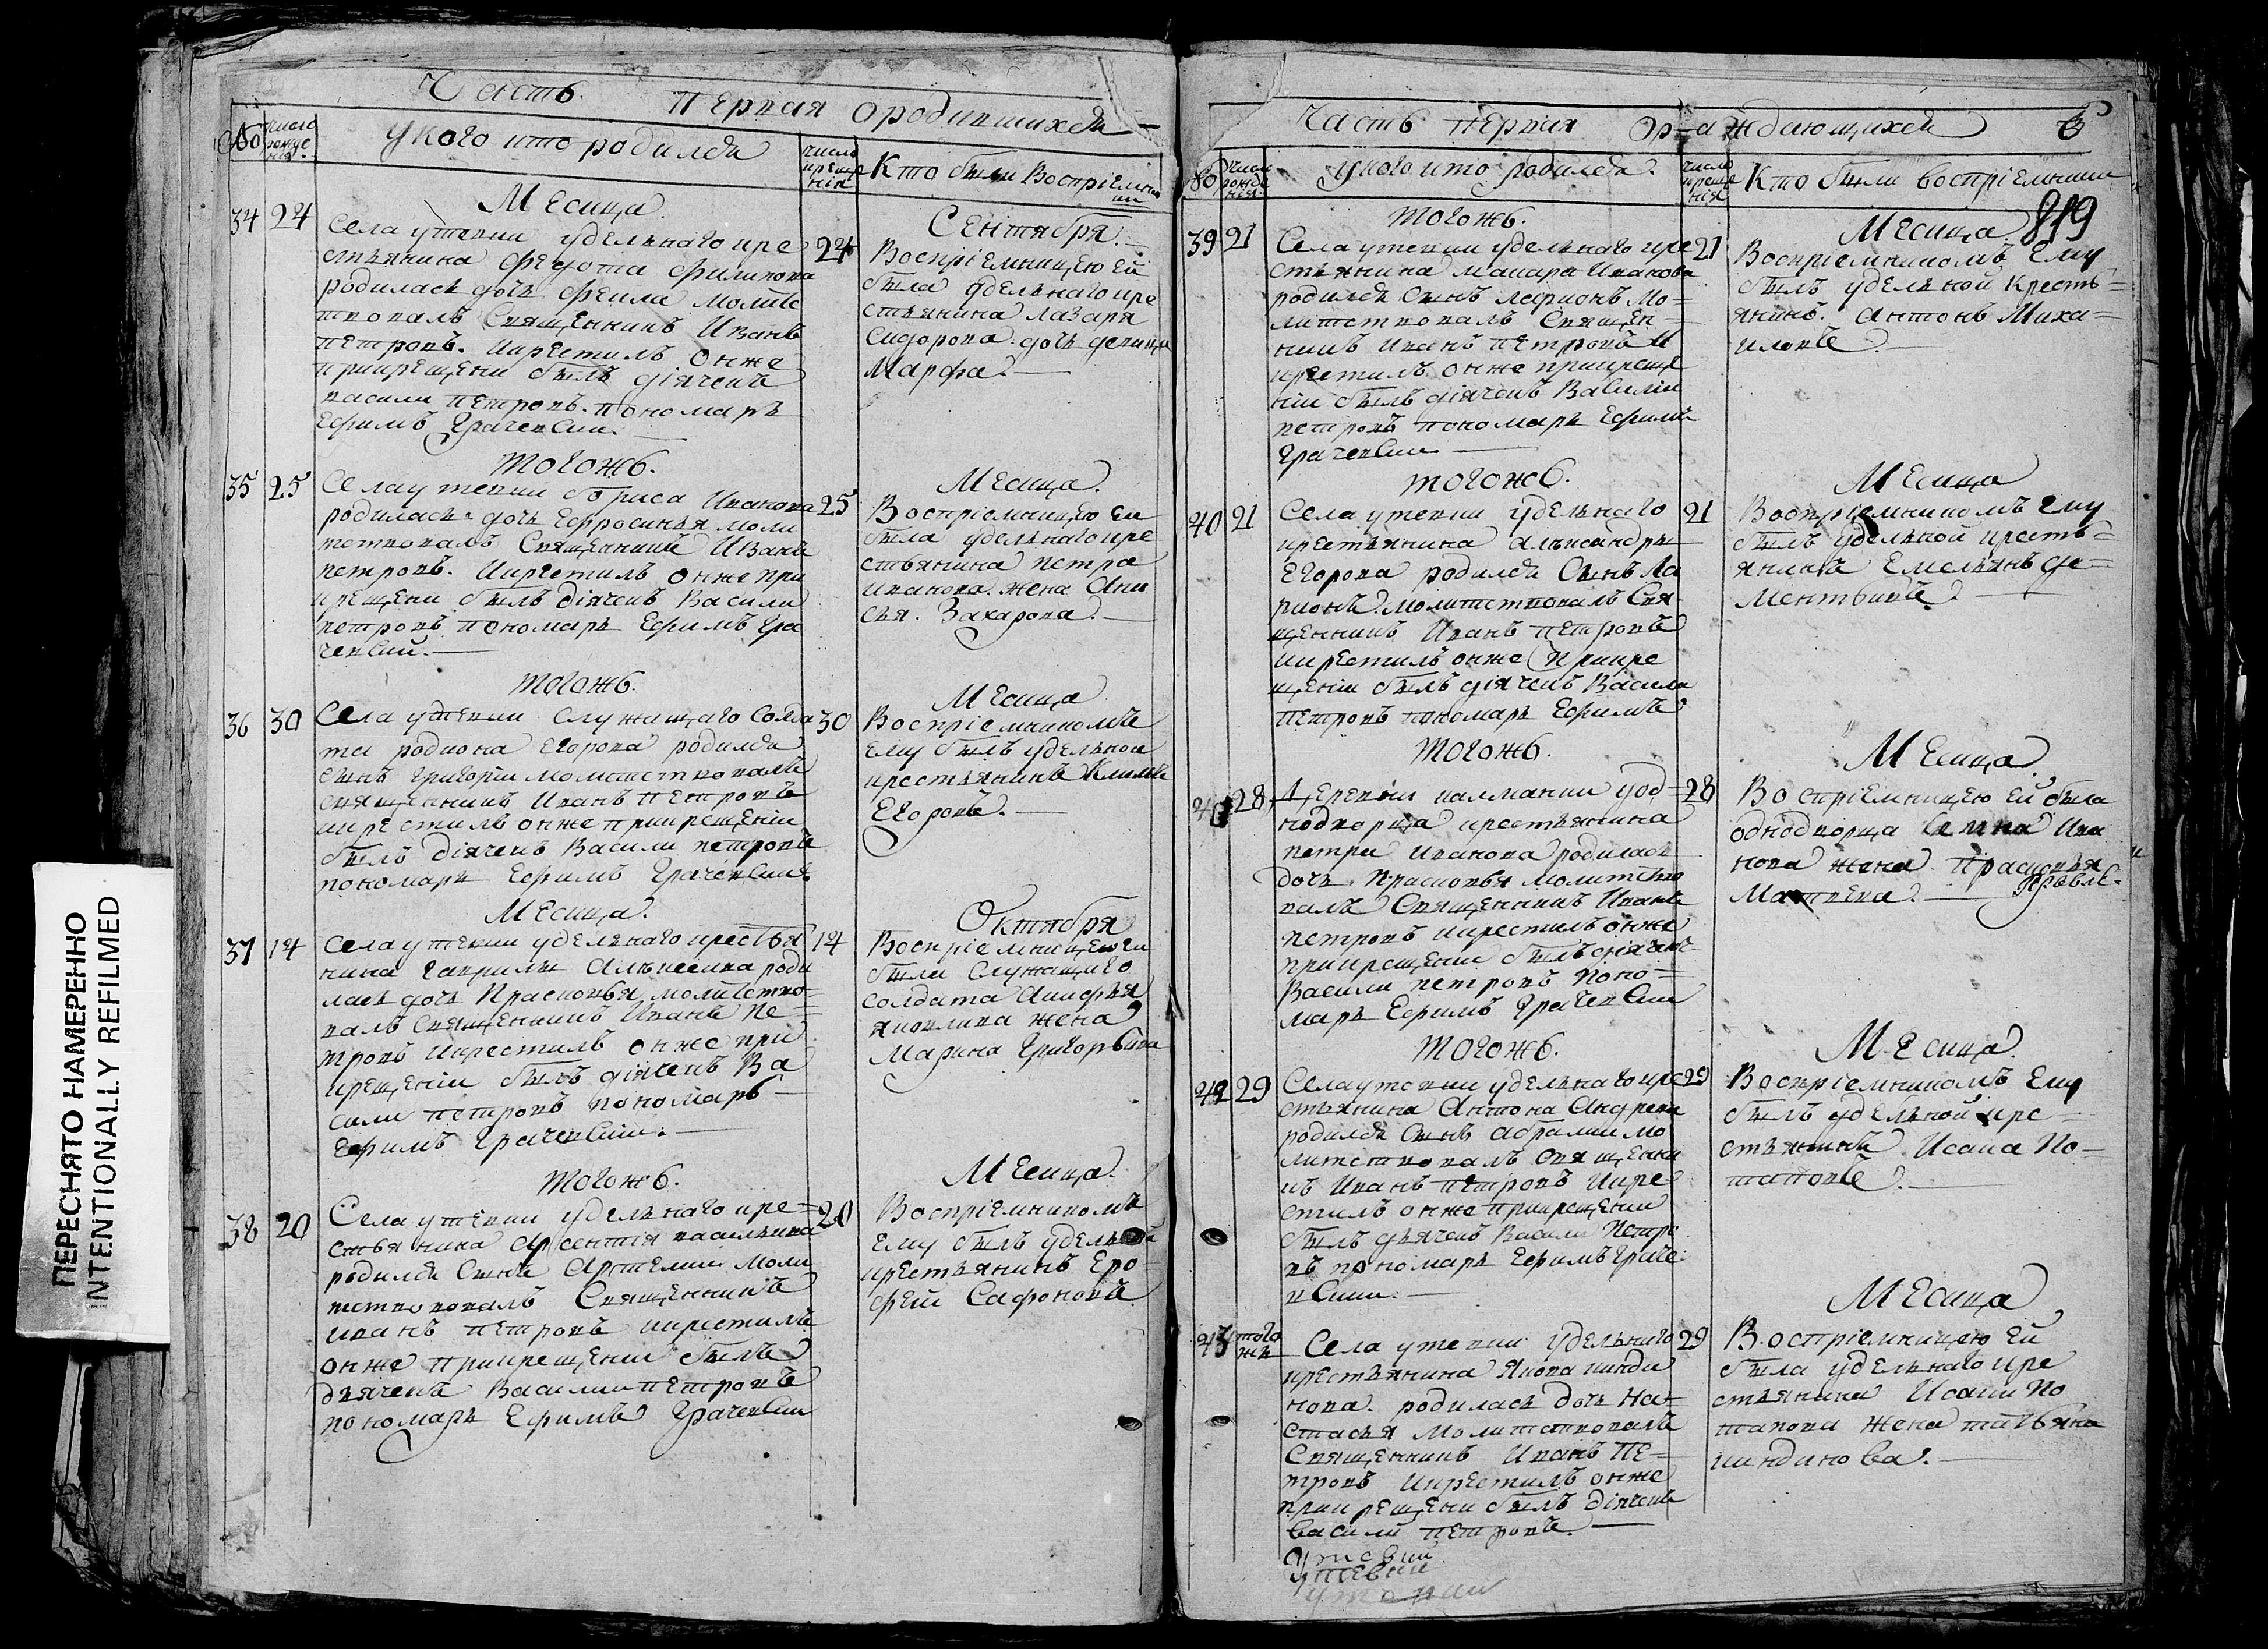 Часть первая ородившихся
№
число рожде нія.
у кого кто родился
число креще нія
Кто были Воспріемни ки
Месяца
Сентября.
34
24
Села утевки удельнаго кре
стьянина Федота Филипова
родилась дочь Феkла молитс
твовалъ Священникъ Иванъ
петровъ. икрестилъ онже
прикрещени былъ діячекъ
васили петровъ. пономарь
Ефимъ Грачевски.
24
Воспріемницею ей
была удельнаго кре
стьянина лазаря
Сидорова дочь девица
Марфа.
тогожъ.
Месяца.
35
25
Села утевки бориса Иванова
родилась дочь Ефросинья моли
тствовалъ Священникъ Иванъ
петровъ. Икрестилъ онже при
крещени былъ діячекъ Васили
петровъ пономарь Ефимъ Гра
чевский.
25
Воспріемницею ей
была удельнаго кре
стьянина петра
иванова жена Ани
сья. Захарова.
тогожъ.
Месяца
36
30
Села утевки служищаго Солда
та родиона Егорова родился
сынъ григорій молитствовалъ
священникъ Иванъ петровъ
икрестилъ онже прикрещеніи
былъ діячекъ Васили петровъ
пономарь Ефимъ Грачевский
30
Воспріемникомъ
ему былъ удельной
крестьянинъ Климъ
Егоровъ.
Месяца.
Октября
37
14
Села утевки удельнаго крестья
нина гаврилы Алексеива роди
лась дочь Прасковья молитство
валъ священникъ Иванъ пе
тровъ Икрестилъ онже при
крещеніи былъ діячекъ Ва
сили петровъ пономарь
Ефимъ Грачевски.
14
Воспріемницею ей
была Служащего
солдата
яковлива жена
Марина Григорьива
тогожъ.
Месяца.
38
20
Села утевки удельнаго кре
стьянина Арсентія васильива
родился Сынъ Артемий Моли
тствовалъ Священникъ
иванъ петровъ икрестилъ
онже прикрещени былъ
дьячекъ Васили петровъ
пономарь Ефимъ Грачевски
20
Воспріемникомъ
Ему былъ удельной
крестьянинъ Еро
фей Сафоновъ
ПЕРЕСНЯТО НАМЕРЕННО
INTENTIONALLY REFILMED
Часть первая Ораждающихся
6
819
№
число рожде нія
у кого кто родился
число креще нія
Кто были воспріемники
тогожъ.
Месяца
39
21
Села утевки удельнаго кре
стьянина Макара Иванова
родился Сынъ лефионъ Мо
литствовалъ Священ
никъ иванъ петровъ И
крестилъ онже прикреще
ніи былъ діячекъ Василии
петровъ пономарь Ефимъ
Грачевски
21
Воспріемникомъ Ему
былъ удельной Кресть
янинъ. Антонъ Миха
иловъ.
тогожъ.
Месяца
40
21
Села утевки удельнаго
крестьянина александры
Егорова родился Сынъ Ла
рионъ. Молитствовалъ Свя
щенникъ Иванъ петровъ
икрестилъ онже Прикре
щеніи былъ діячекъ Васили
петровъ пономарь Ефимъ
21
Воспріемникомъ Ему
былъ удельной кресть
янинъ Емельянъ де
ментьивъ.
тогожъ.
Месяца
28
Деревни калманки уод
нодворца крестьянина
петра Иванова родилась
дочь Прасковья молитство
валъ Священникъ Иванъ
петровъ икрестилъ онже
прикрещени былъ діячекъ
Васили петровъ поно
марь Ефимъ Грачевски
28
Воспріемницею ей была
однодворца Ива
нова жена Прасковья
Матвева.
тогожъ.
Месяца.
42
29
Села утевки удельнаго кре
стьянина Антона Андреева
родился Сынъ Абрамии мо
литствовалъ Священни
къ Иванъ петровъ Икре
стилъ онже прикрещении
былъ дьячекъ Васили Петро
въ пономарь Ефимъ Граче
вски.
29
Воспріемникомъ Ему
былъ удельной кре
стьянинъ Исаиа По
таповъ.
Месяца
43
того жъ
Села утевки удельнаго
крестьянина Якова кинди
нова. родилась дочь На
стасья Молитствовалъ
Священникъ Иванъ Пе
тровъ Икрестилъ онже
прикрещени былъ діячекъ
васили петровъ.
29
Воспріемницею Ей
была удельнаго кре
стьянина Исаии По
тапова жена татьяна
киндинова.
утевки
утевки
утевки